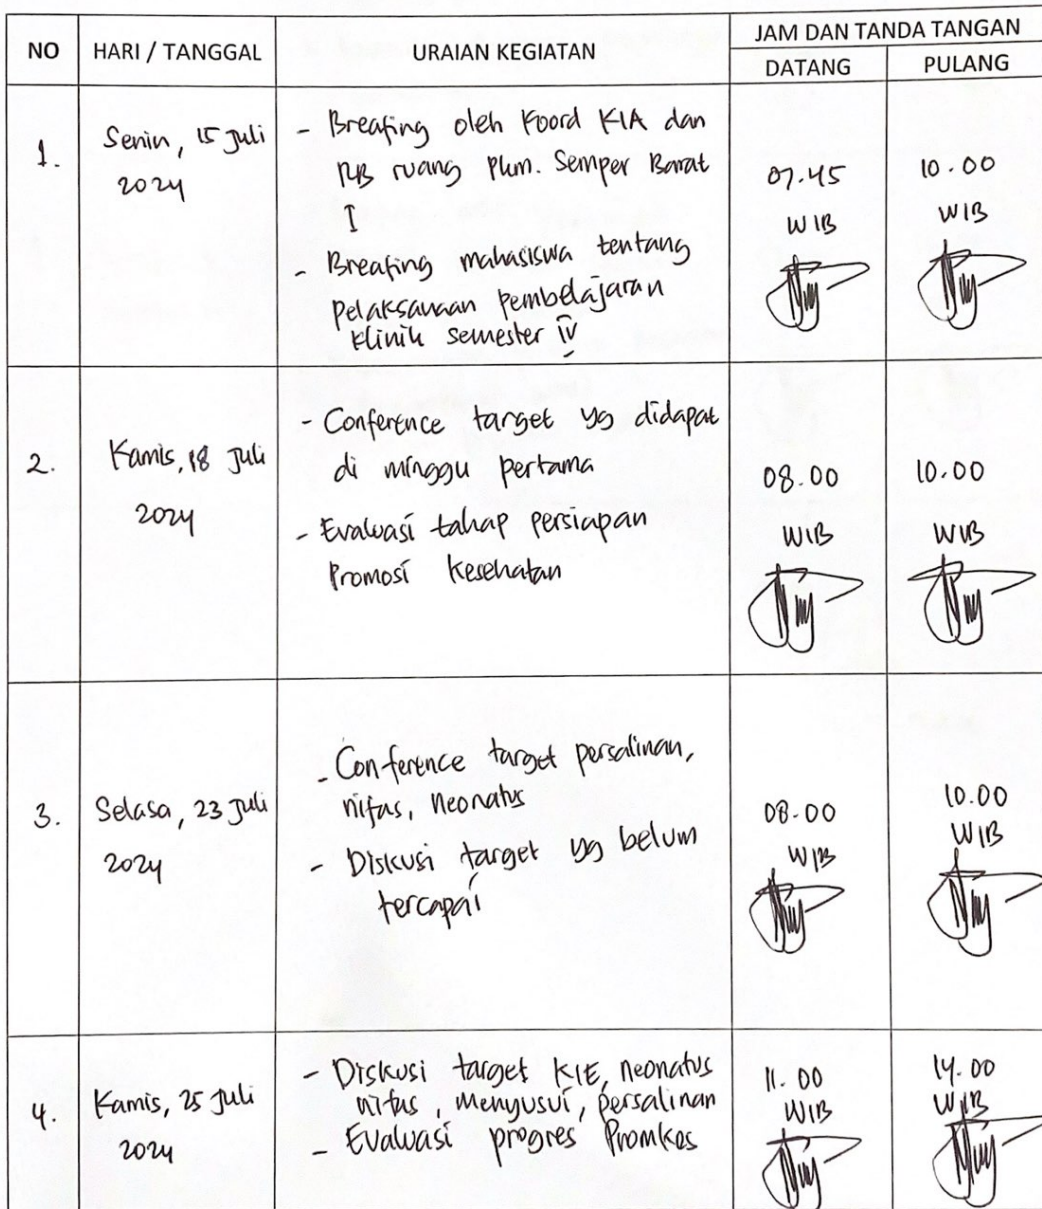 NO HARI / TANGGAL URAIAN KEGIATAN JAM DAN TANDA TANGAN
DATANG PULANG
1. Senin, 15 Juli
2024
- Breafing oleh Koord KIA dan
RB ruang Pkm. Semper Barat
I
- Breafing mahasiswa tentang
pelaksanaan pembelajaran
klinik semester IV
07.45
WIB
10.00
WIB
2. Kamis, 18 Juli
2024
- Conference target yg didapat
di minggu pertama
- Evaluasi tahap persiapan
Promosi kesehatan
08.00
WIB
10.00
WIB
3. Selasa, 23 Juli
2024
- Conference target persalinan,
nifas, neonatus
- Diskusi target yg belum
tercapai
08.00
WIB
10.00
WIB
4. Kamis, 25 Juli
2024
- Diskusi target KIE, neonatus
nifas, menyusui, persalinan
- Evaluasi progres Promkes
11.00
WIB
14.00
WIB